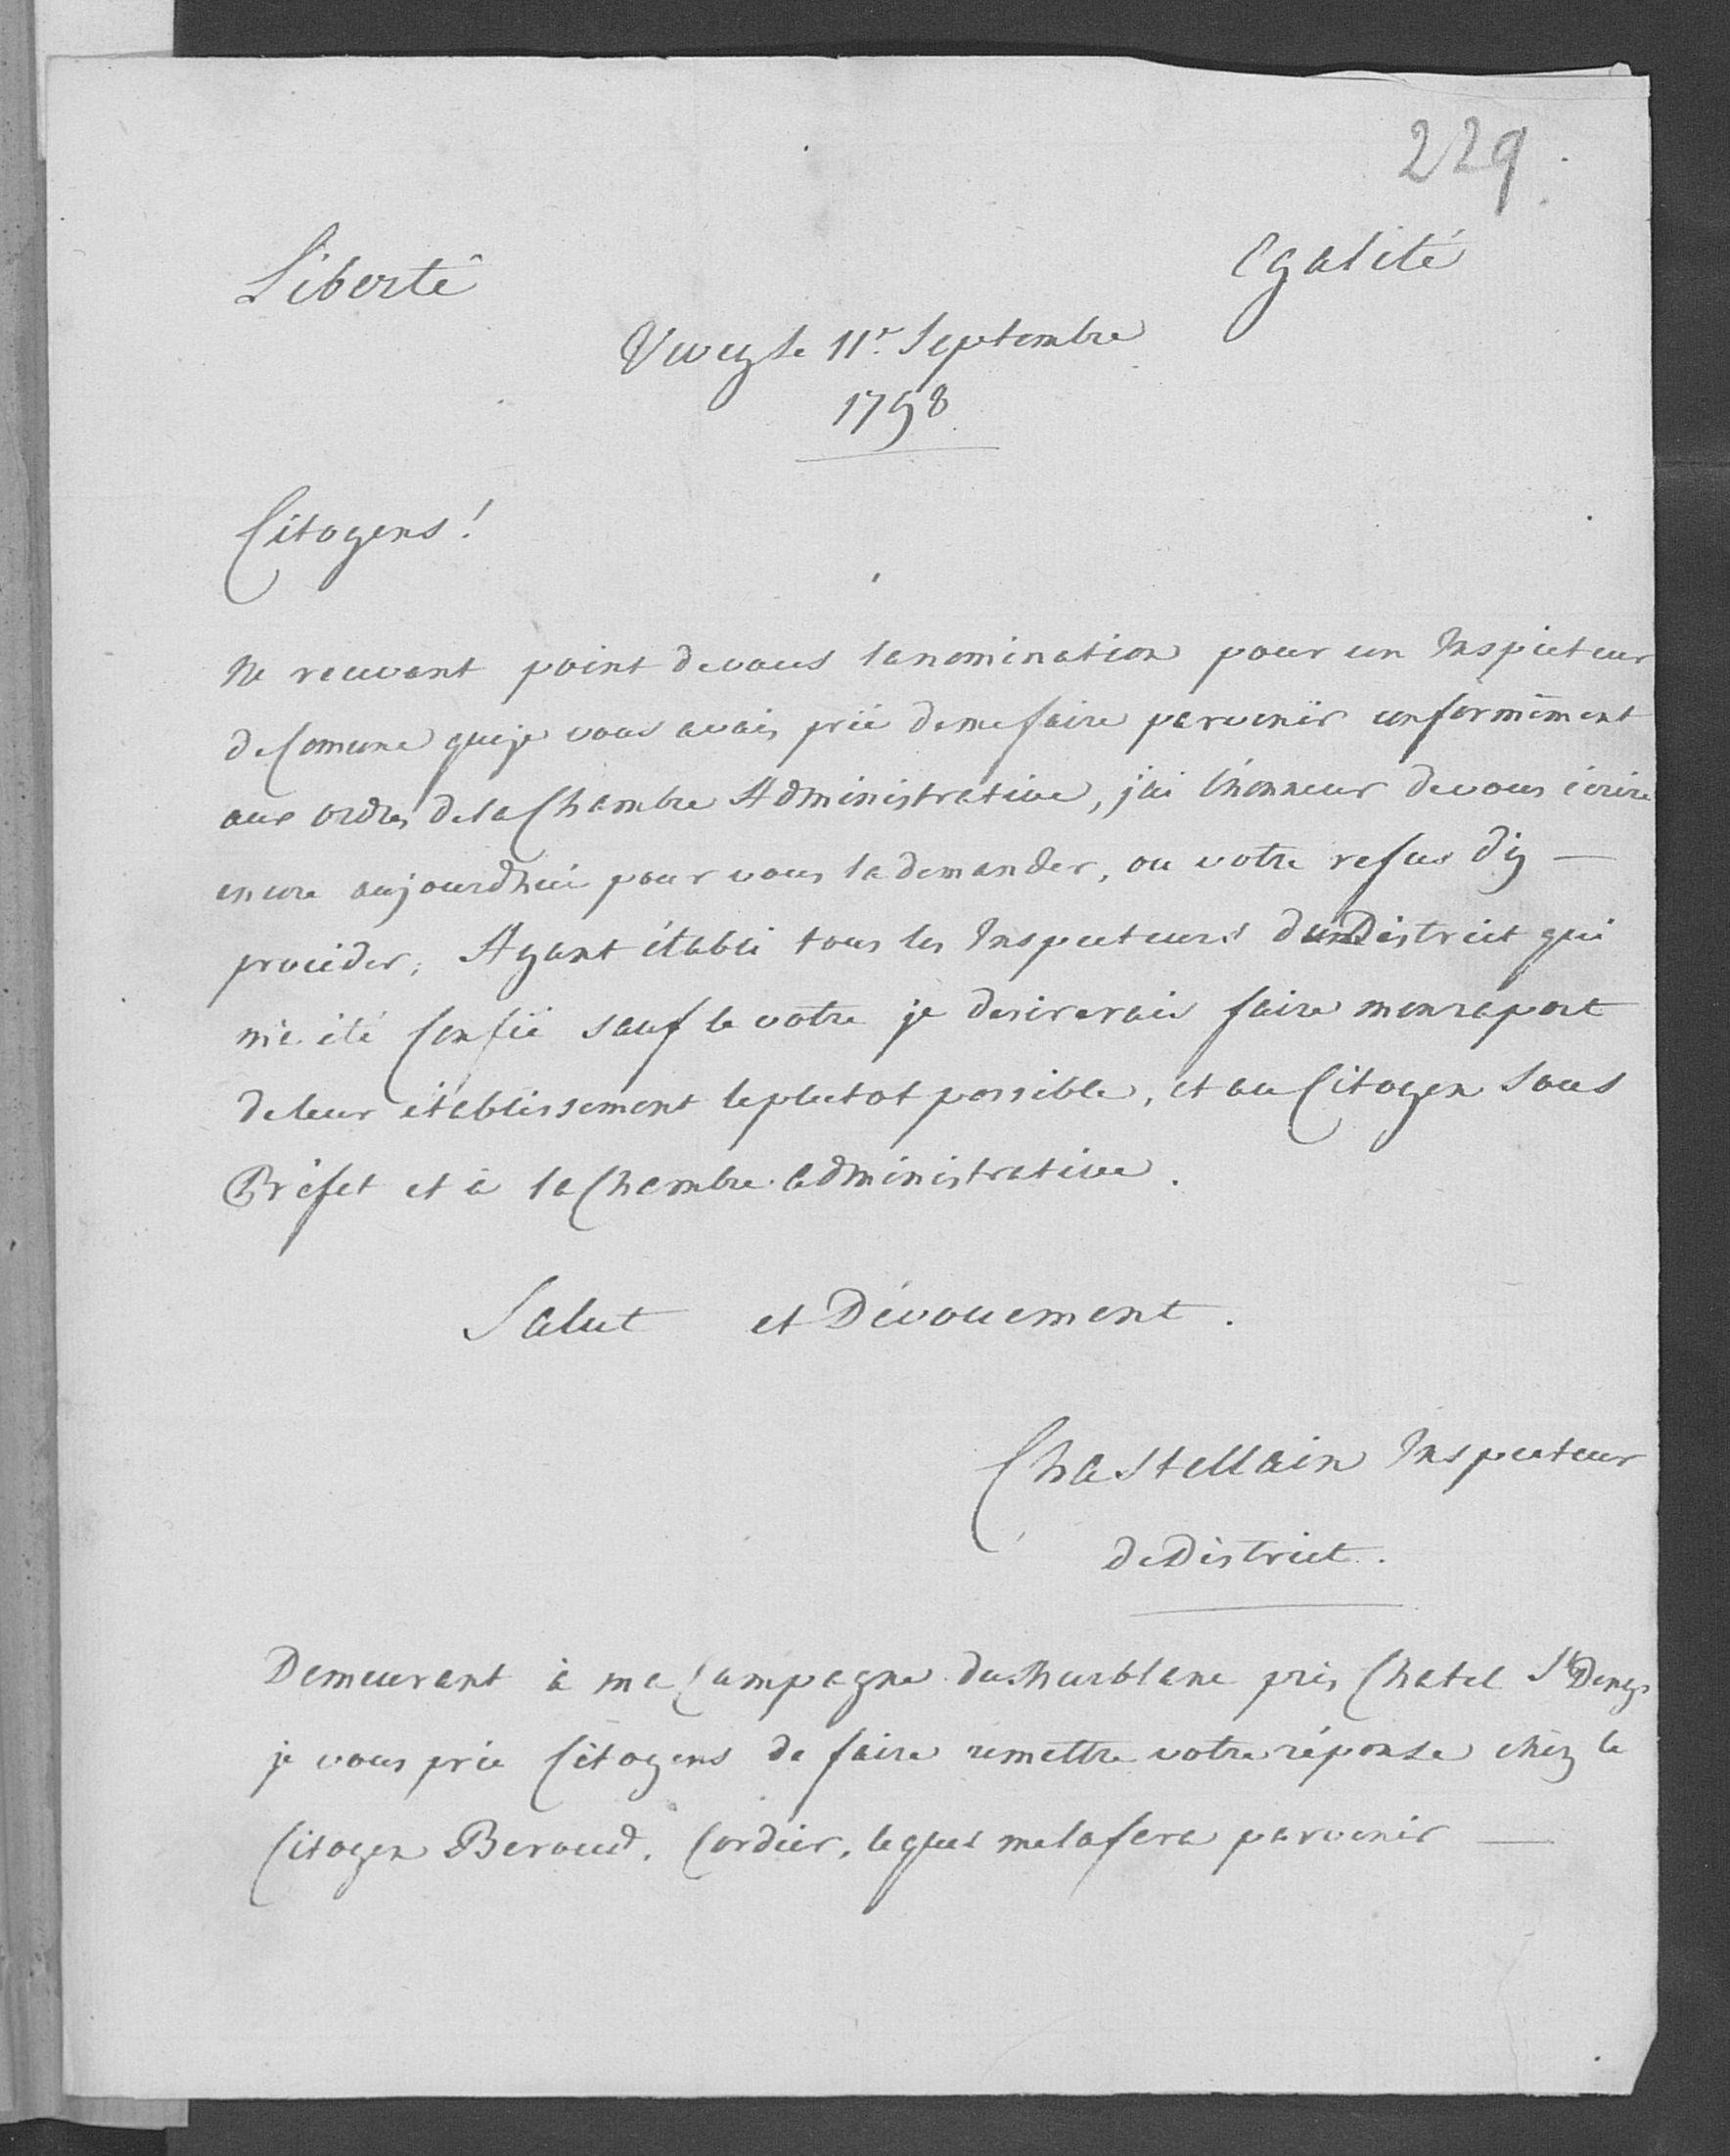 229.
Liberté Egalité
Vevey le 11.r Septembre
1798.
Citoyens!
Ne recevant point de vous la nomination pour un Inspecteur
de Comune que je vous avais prié de me faire parvenir conformément
aux ordres de la Chambre Administrative, j'ai l'honneur de vous écrire
encore aujourdhui pour vous la demander, ou votre refus d'y —
procéder; Ayant établi tous les Inspecteurs du District qui
m'a été Confié sauf le votre je desirerais faire mon raport
de leur établissement le plutot possible, et au Citoyen Sous
Préfet et à la Chambre administrative.
Salut et Dévouement.
Chastellain Inspecteur
de District.
Demeurant à ma Campagne du près Chatel St Denys
je vous prie Citoyens de faire remettre votre réponse chez le
Citoyen Beroud. Cordier, lequel me la fera parvenir —